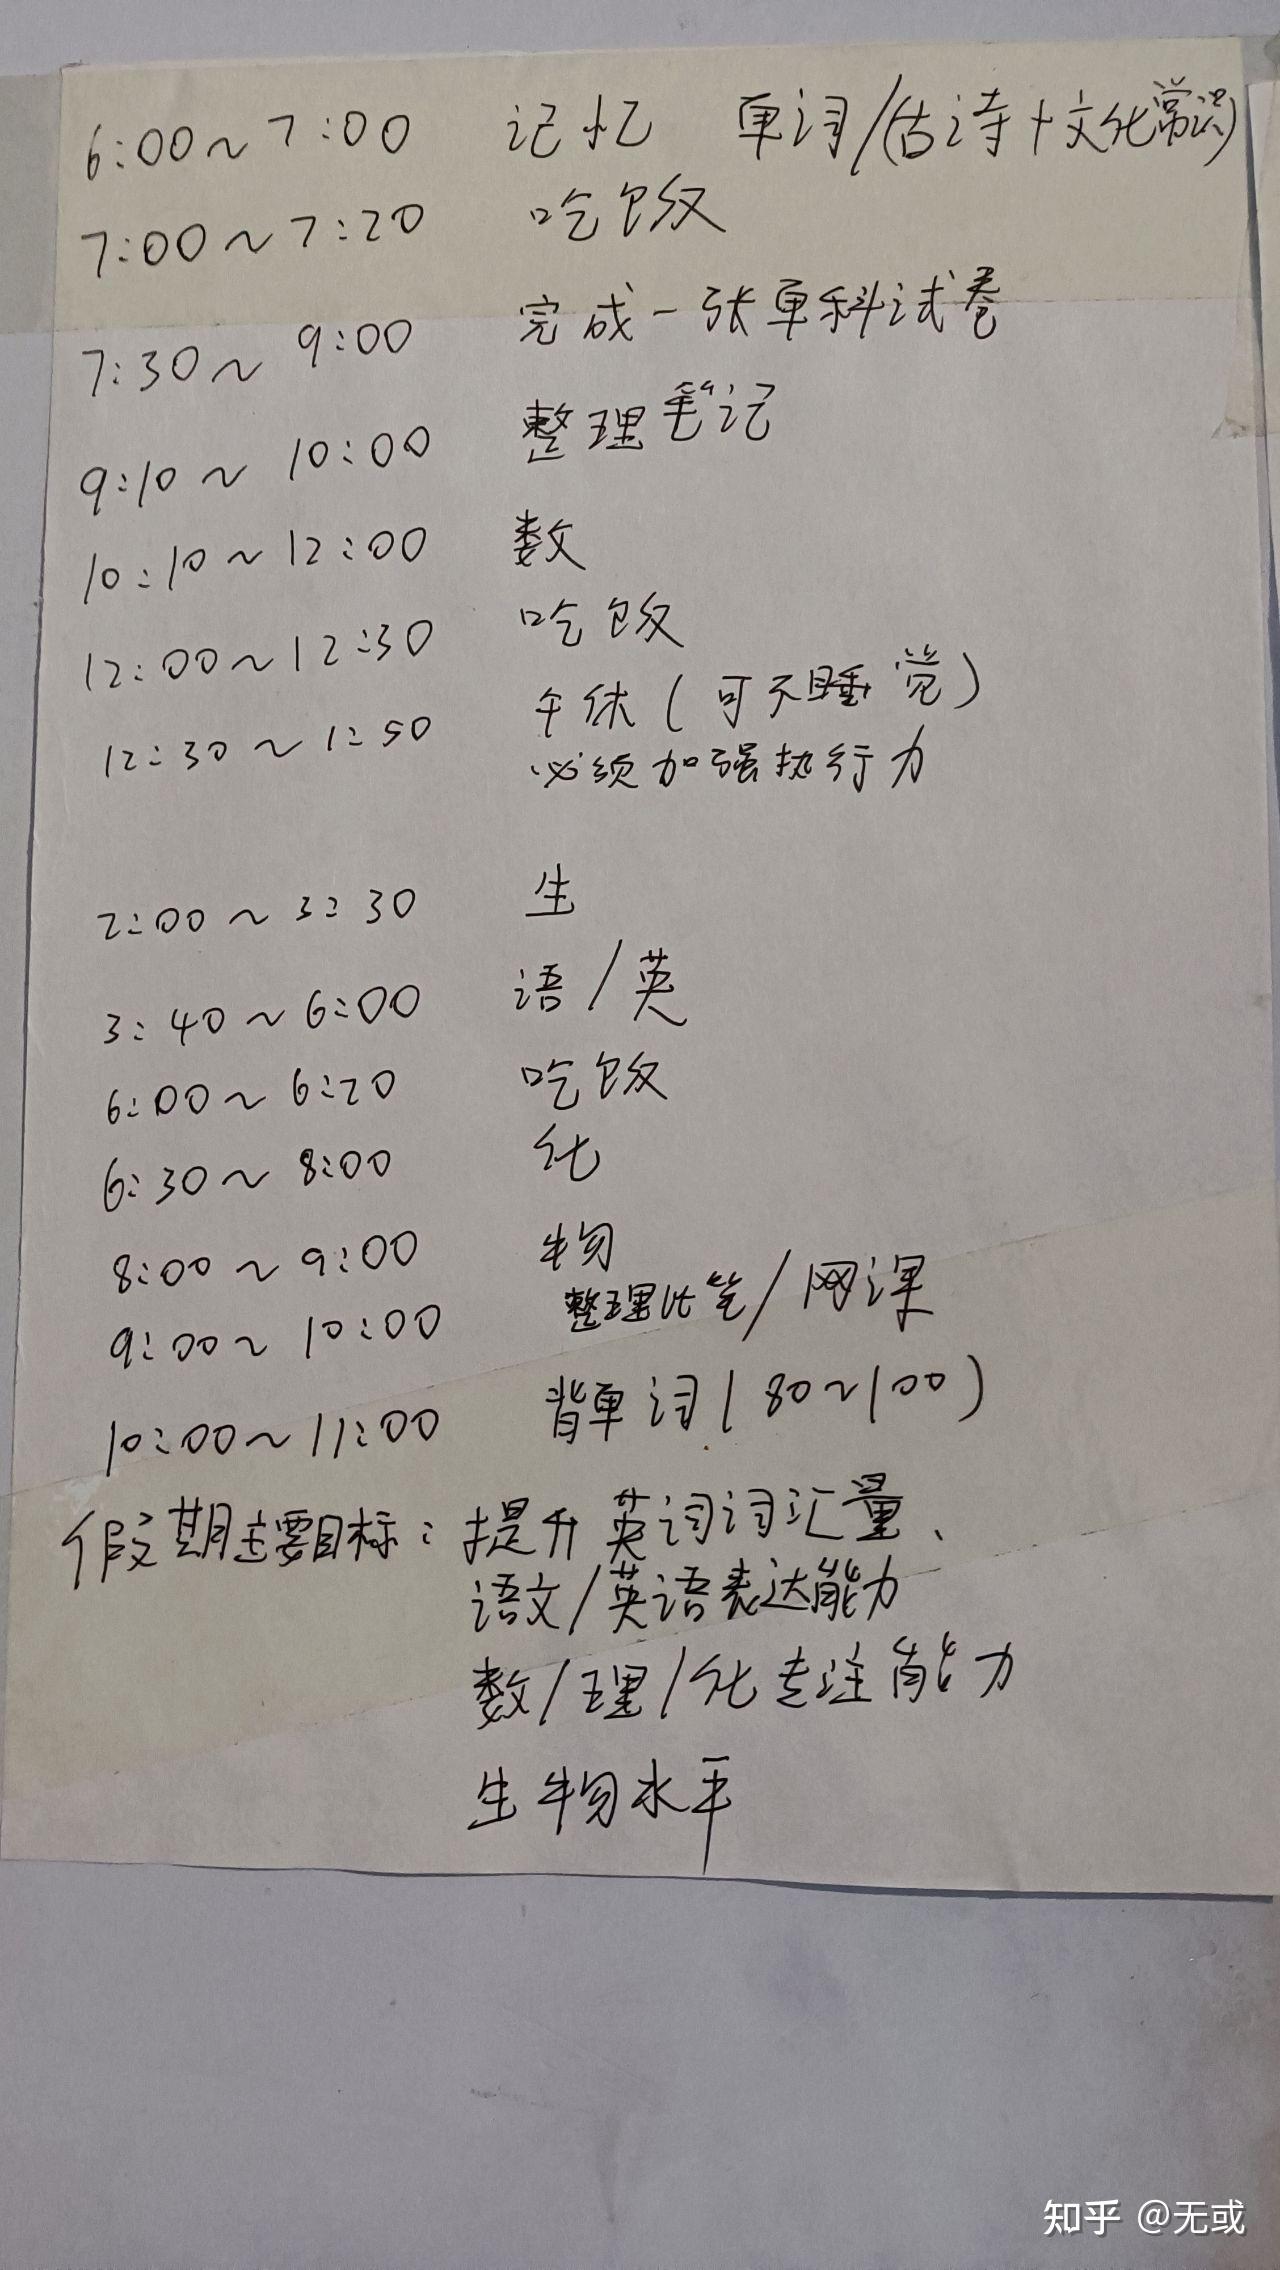 6:00~7:00 记忆 单词/(古诗+文化常识)
7:00~7:20 吃饭
7:30~9:00 完成一张单科试卷
9:10~10:00 整理笔记
10:10~12:00 数
12:00~12:30 吃饭
12:30~1:50 午休(可不睡觉)
必须加强执行力
2:00~3:30 生
3:40~6:00 语/英
6:00~6:20 吃饭
6:30~8:00 化
8:00~9:00 物
9:00~10:00 整理比笔/网课
10:00~11:00 背单词(80~100)
假期主要目标:提升英词词汇量、
语文/英语表达能力
数/理/化专注能力
生物水平
知乎 @无或